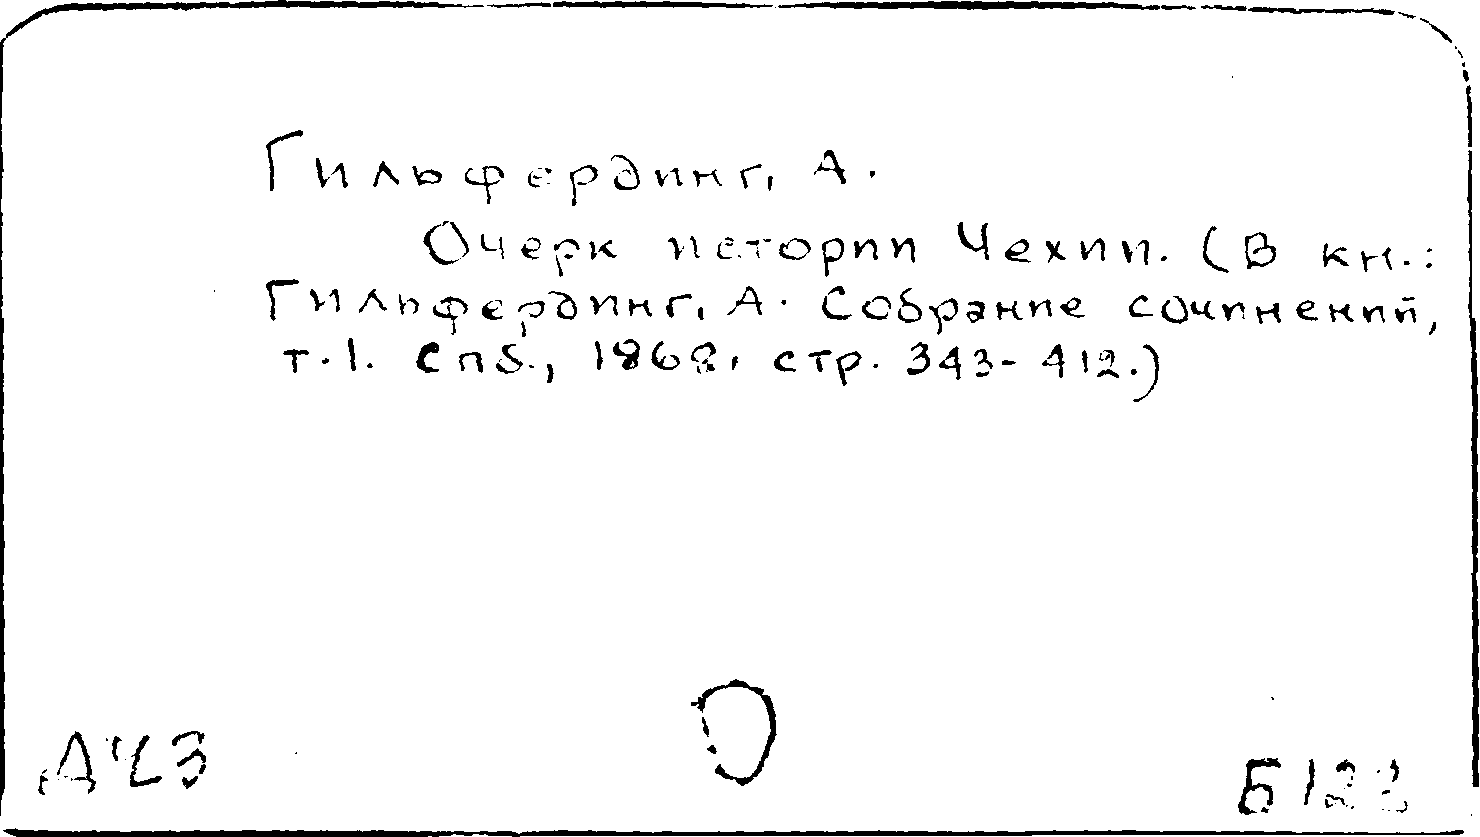 Гильфердинг, А.
Очерк истории Чехии. (В кн.:
Гильфердинг, А. Собрание сочинений,
т.1. Спб., 1868, стр. 343-412.)